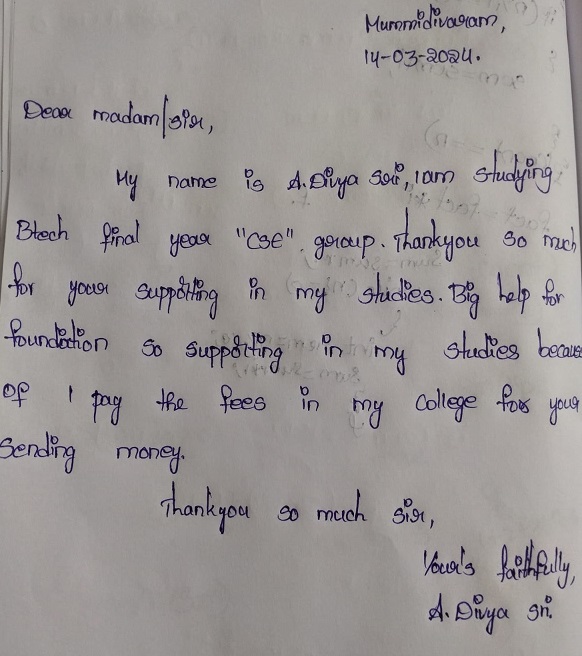 Mummidivaram,
14-03-2024.
Dear madam/sir,
My name is A.Divya sri, iam studying
Btech final year "CSE" group. Thankyou so much
for your supporting in my studies. Big help for
foundation so supporting in my studies because
of I pay the fees in my college for your
sending money.
Thankyou so much sir,
Your's faithfully,
A. Divya sri.